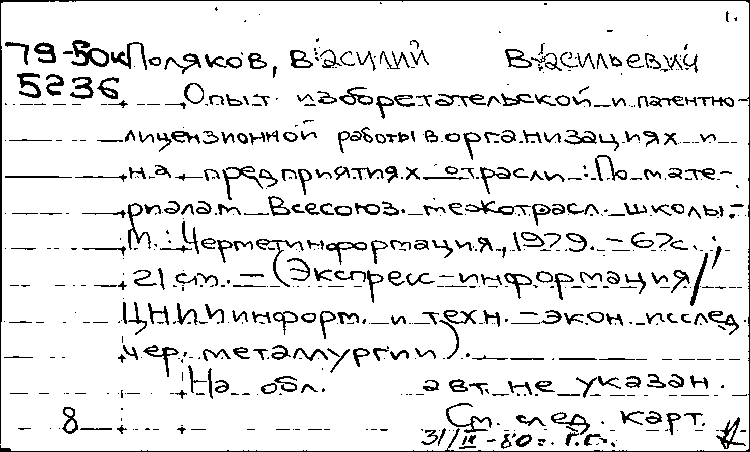 1.
79-50к Поляков, Василий Васильевич
5236 Опыт изобретательской и патентно-
лицензионной работы в организациях и
на предприятиях отрасли: По мате-
риалам Всесоюз. межотрасл. школы.-
М.: Черметинформация, 1979. - 67с.;
21 см. - (Экспресс-информация/
ЦНИИинформ. и техн.-экон. исслед.
чер. металлургии).
На обл. авт. не указан.
8 См. след. карт.
31/III-80г. Г.Г.